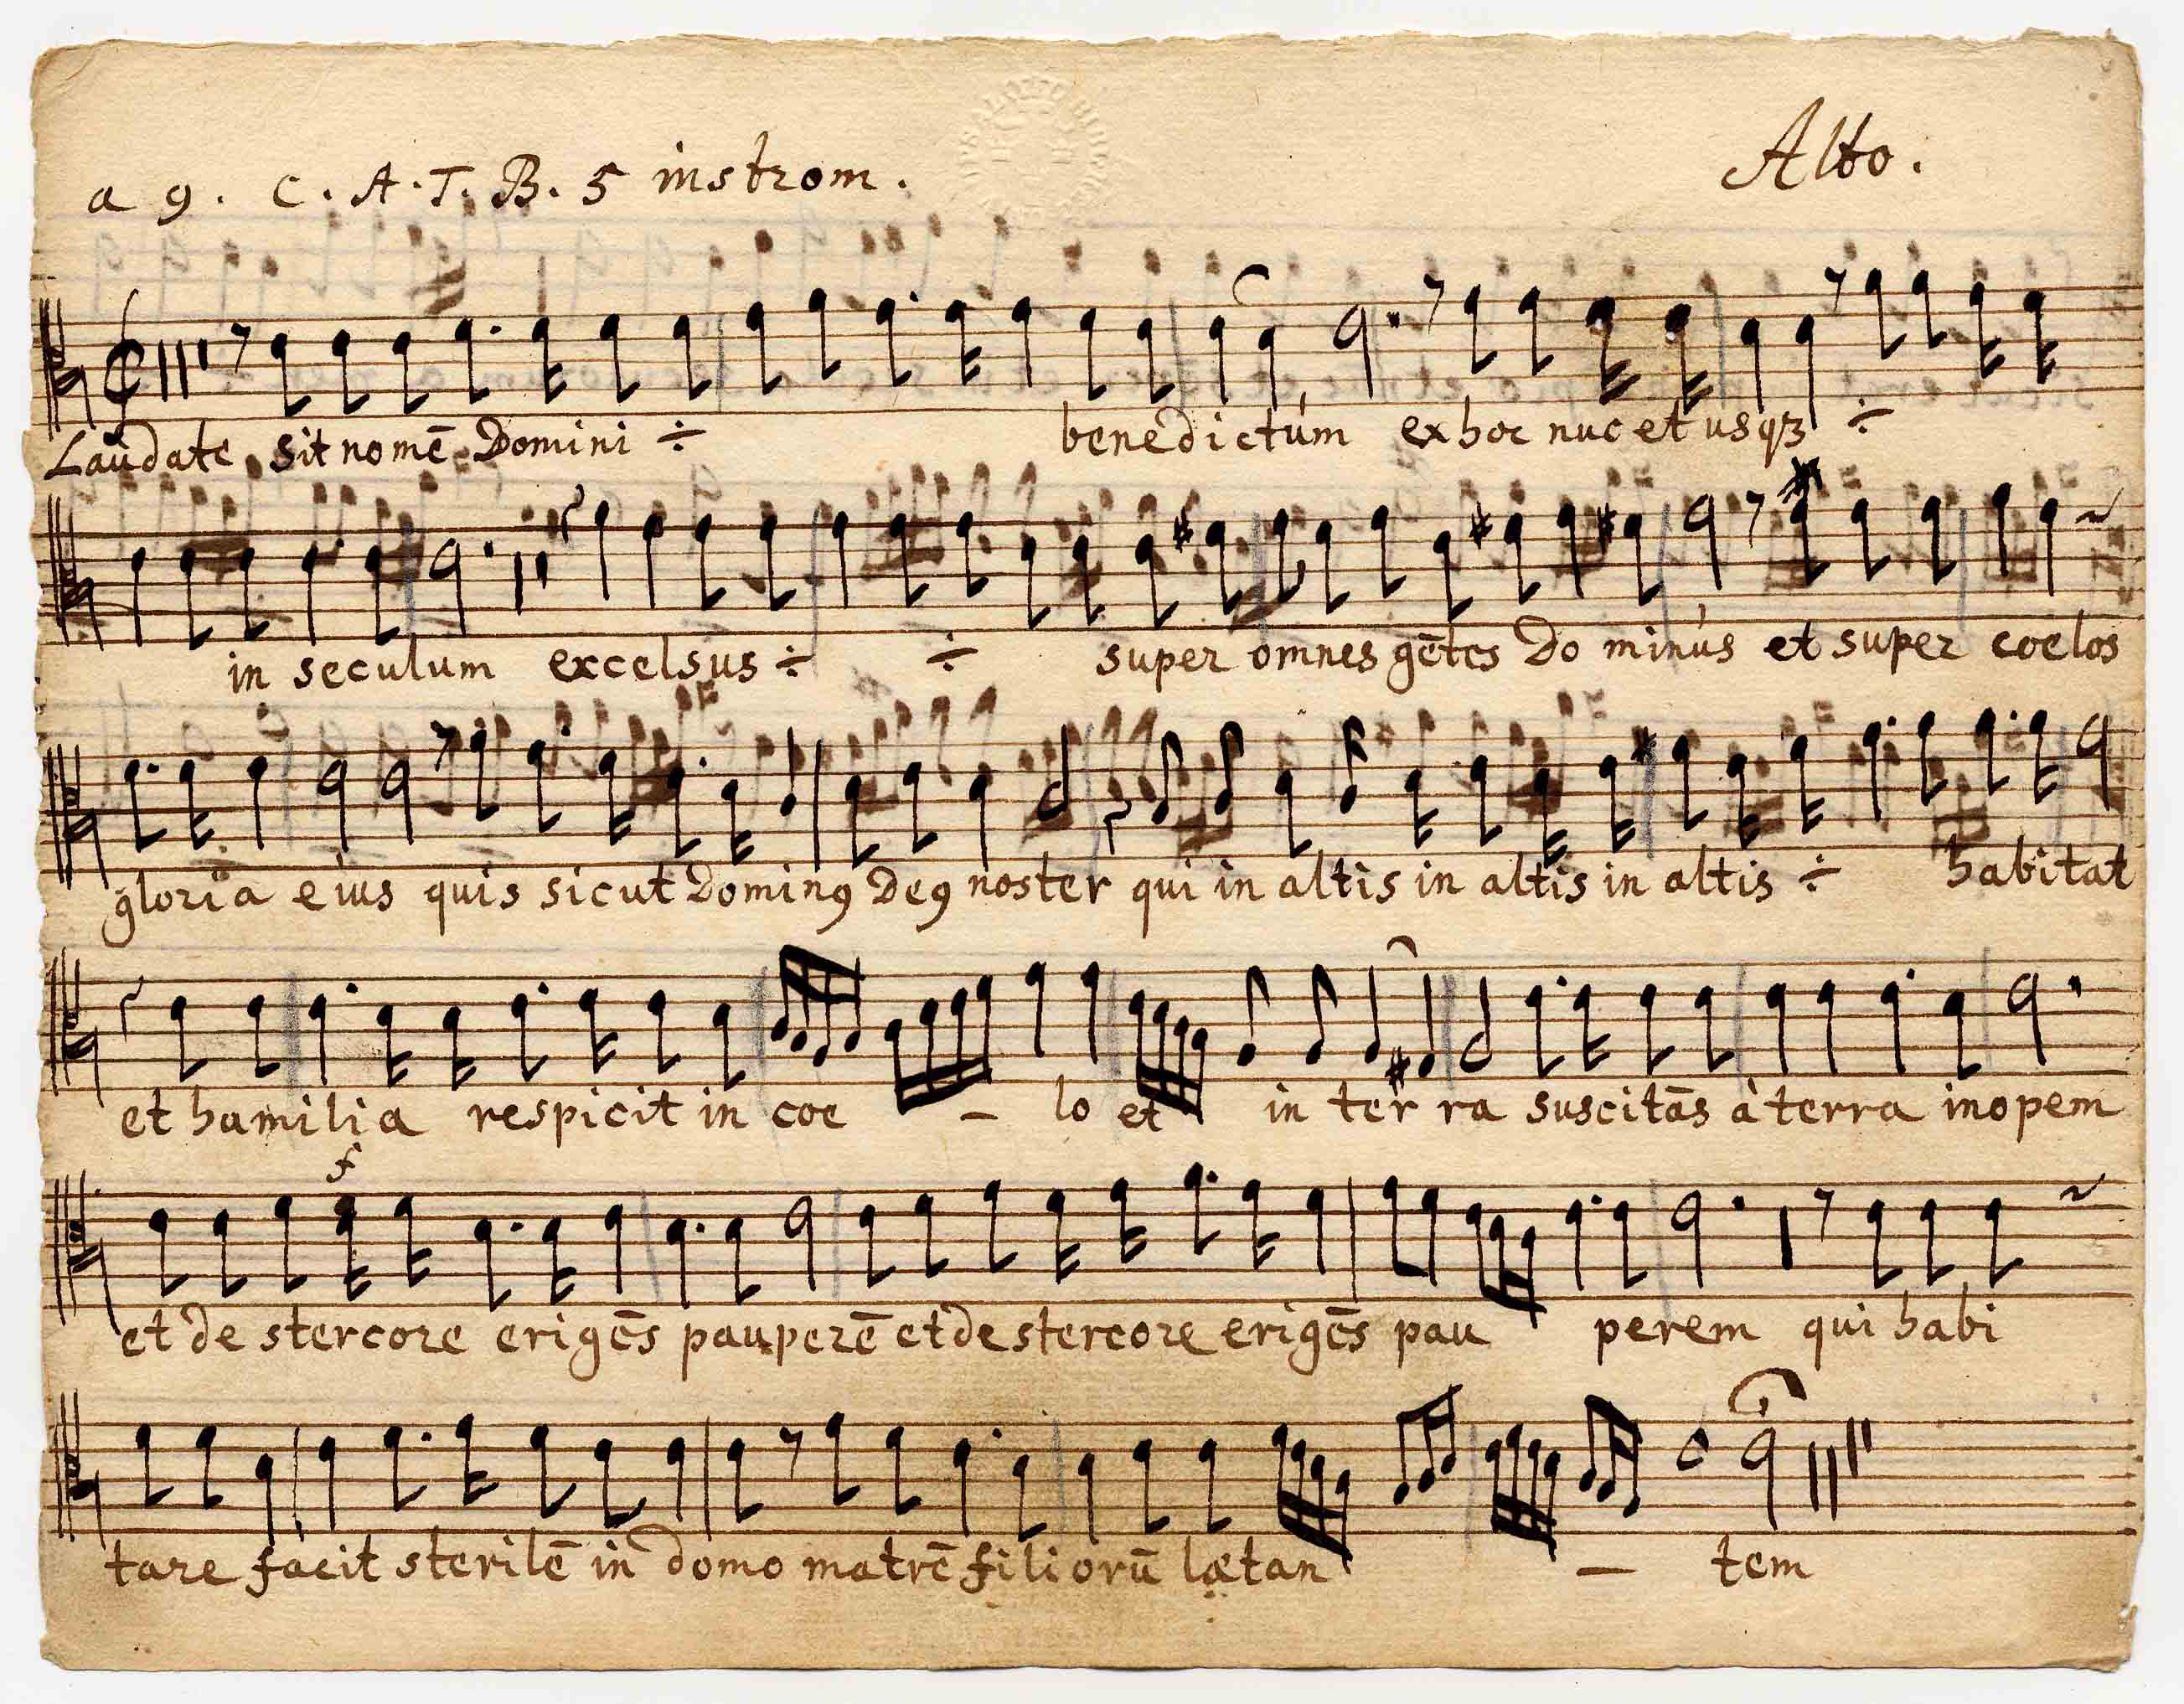 a 9. C. A. T. B. 5 instrom.
Alto.
Laudate sit nomē Domini ÷ benedictúm ex hoc nuc et usqꝫ ÷
in seculum excelsus ÷ ÷ super omnes gētes Do minús et super coelos
gloria eius quis sicut Dominꝯ Deꝯ noster qui in altis in altis in altis ÷ habitat
et hamilia respicit in coe – lo et in ter ra suscitās à terra inopem
f
et de stercore erigēs pauperē et de stercore erigēs pau perem qui habi
tare facit sterilē in domo matrē filiorū lætan – tem